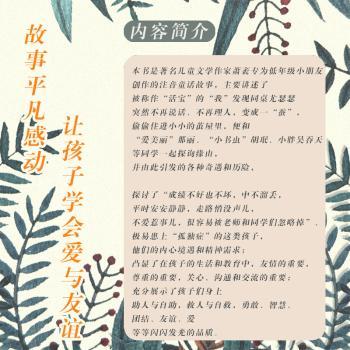 故事平凡感动
让孩子学会爱与友谊
内容简介
本书是著名儿童文学作家萧袤专为低年级小朋友
创作的注音童话故事，主要讲述了
被称作“活宝”的“我”发现同桌尤瑟瑟
突然不再说话、不再理人，变成一“蚕”，
偷偷住进小小的蚕屋里，便和
“爱美丽”那丽、“小书虫”胡珉、小胖吴吞天
等同学一起探询缘由，
并由此引发的各种奇遇和历险。
探讨了“成绩不好也不坏，中不溜丢，
平时安安静静，走路悄没声儿，
不爱惹事儿，很容易被老师和同学们忽略掉”、
极易患上“孤独症”的这类孩子，
他们的内心境遇和精神需求；
凸显了在孩子的生活和教育中，友情的重要，
尊重的重要，关心、沟通和交流的重要；
充分展示了孩子们身上
助人与自助、救人与自救，勇敢、智慧、
团结、友谊、爱
等等闪闪发光的品质。